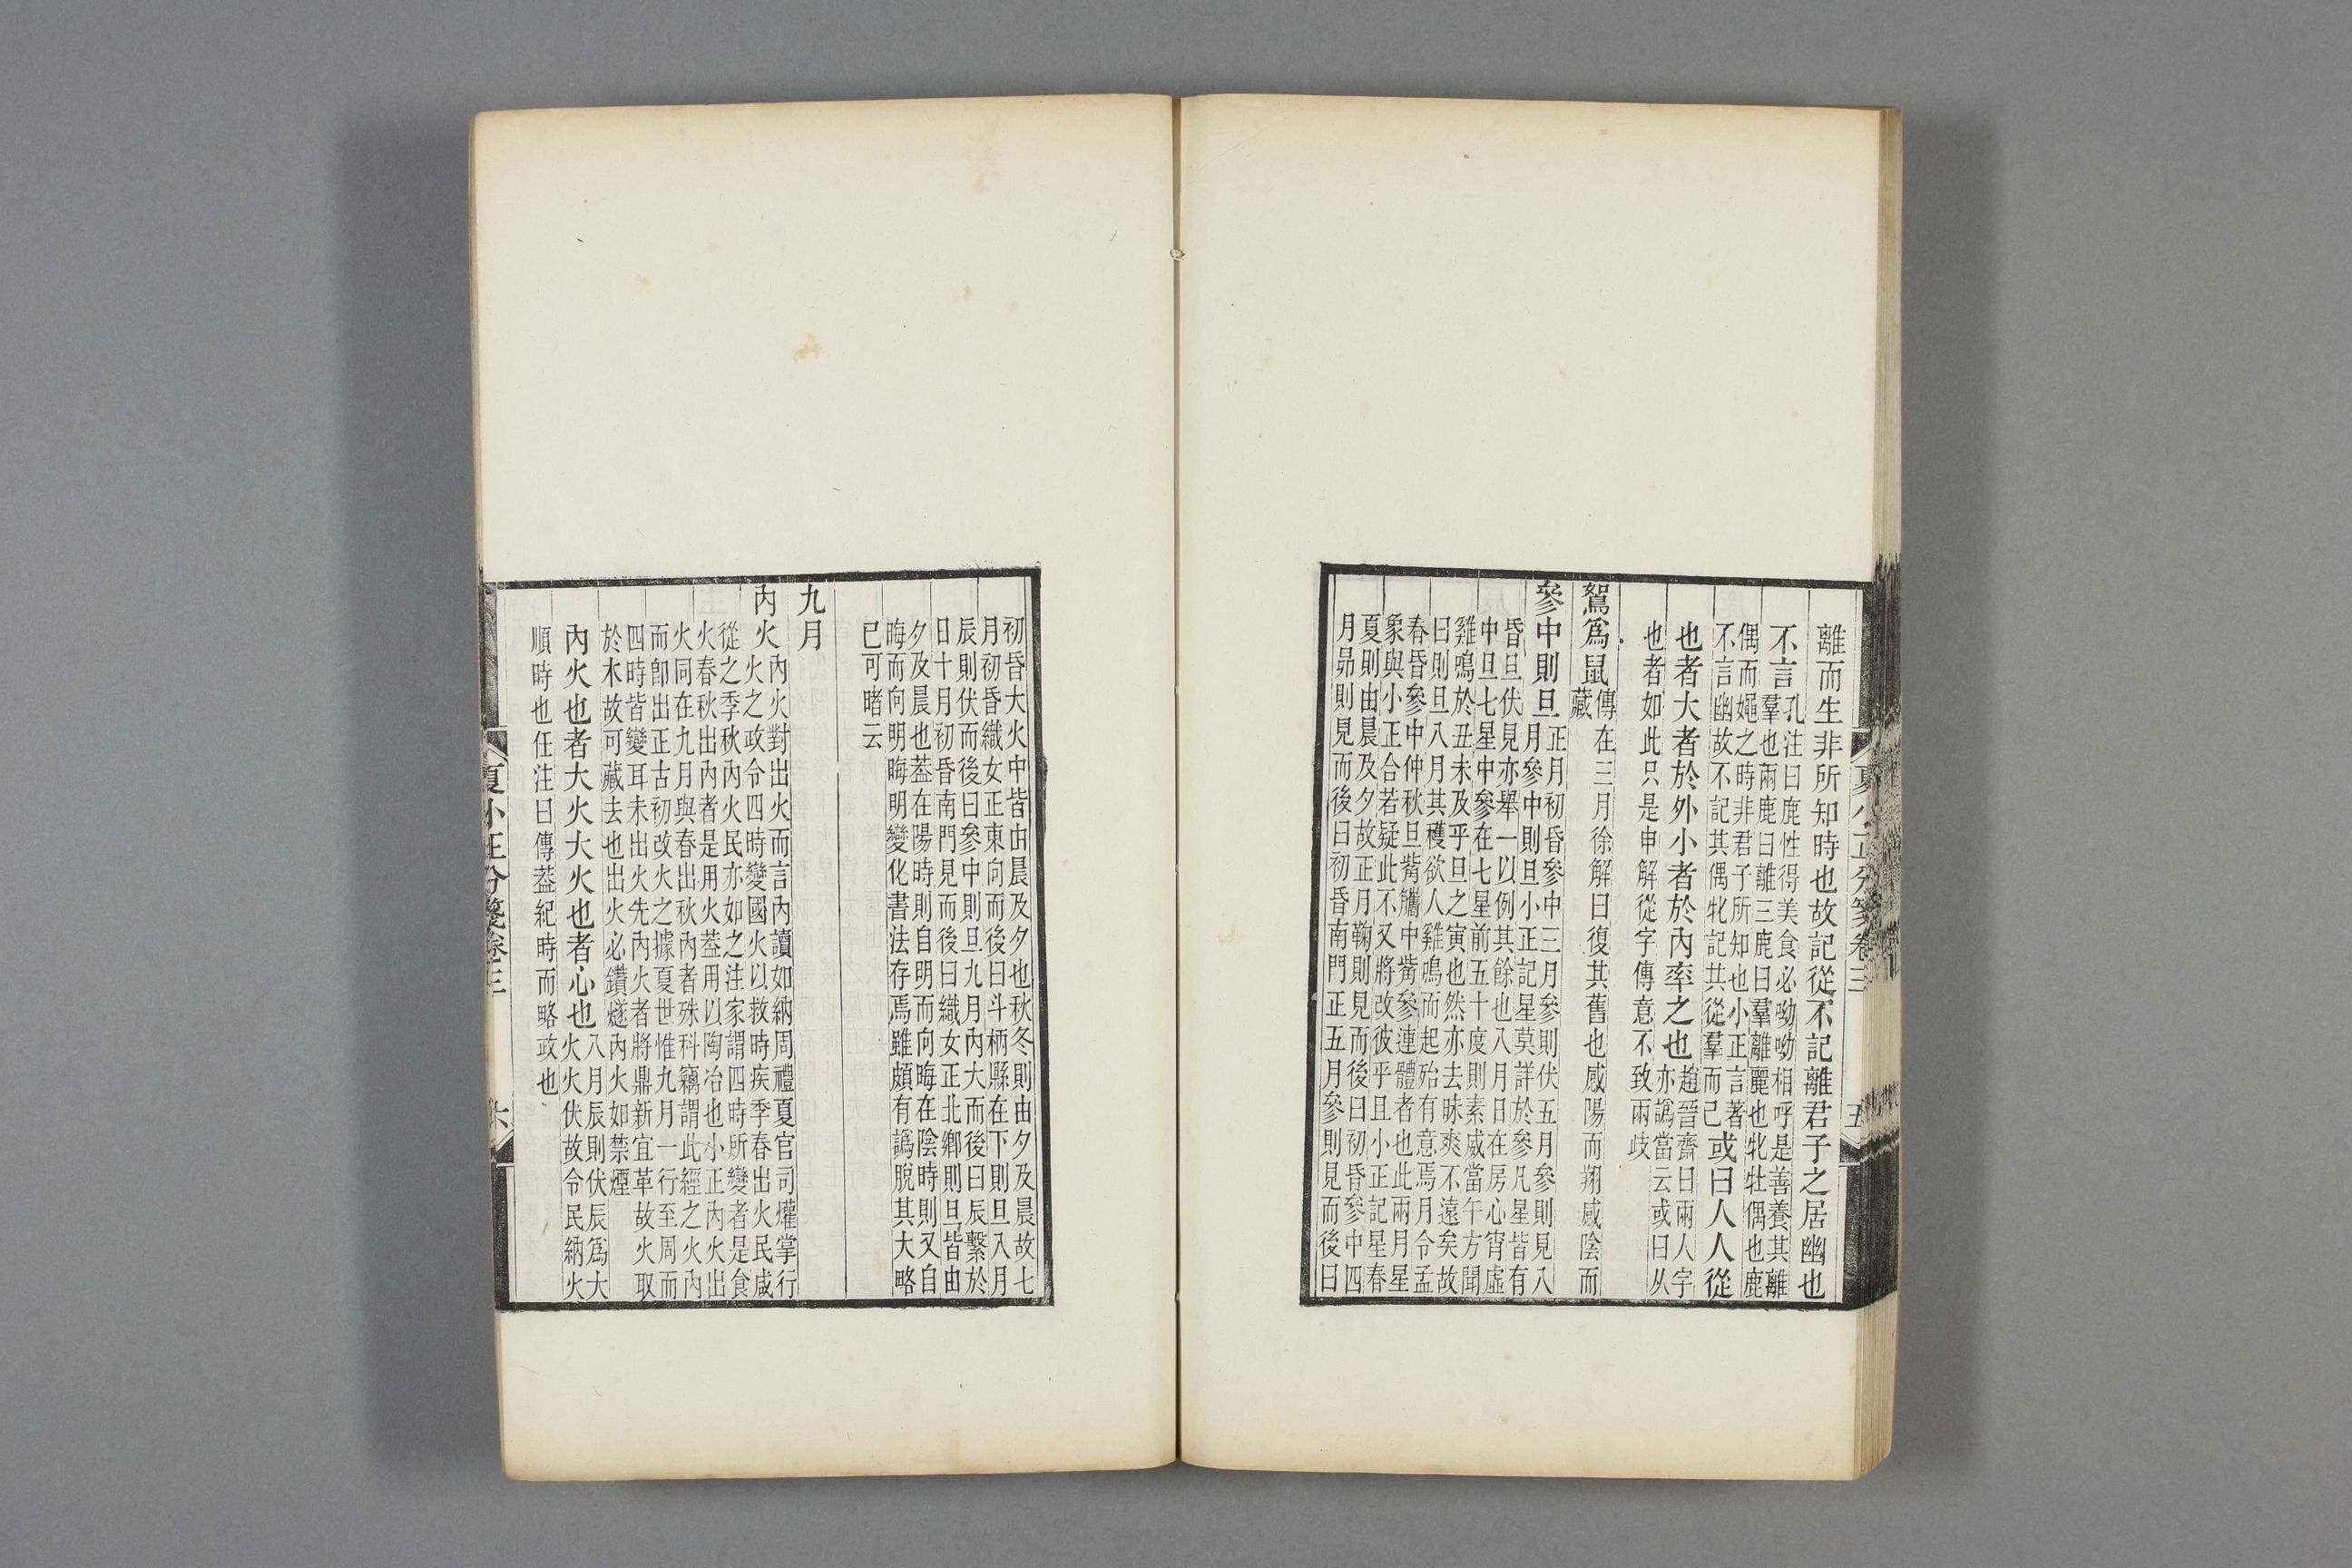 離而生非所知時也故記從不記離君子之居幽也
不言
孔注曰鹿性得美食必呦呦相呼是善養其離
羣也兩鹿曰離三鹿曰羣離麗也牝牡偶也鹿
偶而㛴之時非君子所知也小正言著
不言幽故不記其偶牝記其從羣而已
或曰人人從
也者大者於外小者於內率之也
趙晉齋曰兩人字
亦譌當云或曰从
也者如此只是申解從字傳意不致兩歧
鴽爲鼠
傳在三月徐解曰復其舊也感陽而翔感陰而
藏
參中則旦
正月初昏參中三月參則伏五月參則見八
月參中則旦小正記星莫詳於參凡星皆有
昏旦伏見亦舉一以例其餘也八月日在房心宵虛
中旦七星中參在七星前五十度則素威當午方聞
雞鳴於丑未及乎旦之寅也然亦去昧爽不遠矣故
曰則旦八月其穫欲人雞鳴而起殆有意焉月令孟
春昏參中仲秋旦觜觿中觜參連體者也此兩月星
象與小正合若疑此不又將改彼乎且小正記星春
夏則由晨及夕故正月鞠則見而後曰初昏參中四
月昴則見而後曰初昏南門正五月參則見而後曰
夏小正分箋卷三
五
初昏大火中皆由晨及夕也秋冬則由夕及晨故七
月初昏織女正東向而後曰斗柄縣在下則旦八月
辰則伏而後曰參中則旦九月內大而後曰辰繫於
日十月初昏南門見而後曰織女正北鄉則旦皆由
夕及晨也葢在陽時則自明而向晦在陰時則又自
晦而向明晦明變化書法存焉雖頗有譌脫其大略
已可睹云
九月
內火
內火對出火而言內讀如納周禮夏官司爟掌行
火之政令四時變國火以救時疾季春出火民咸
從之季秋內火民亦如之注家謂四時所變者是食
火春秋出內者是用火葢用以陶冶也小正內火出
火同在九月與春出秋內者殊科竊謂此經之火內
而卽出正古初改火之據夏世惟九月一行至周而
四時皆變耳未出火先內火者將鼎新宜革故火取
於木故可藏去也出火必鑽燧內火如禁煙
內火也者大火大火也者心也
八月辰則伏辰爲大
火火伏故令民納火
順時也任注曰傳葢紀時而略政也
夏小正分箋卷三
六